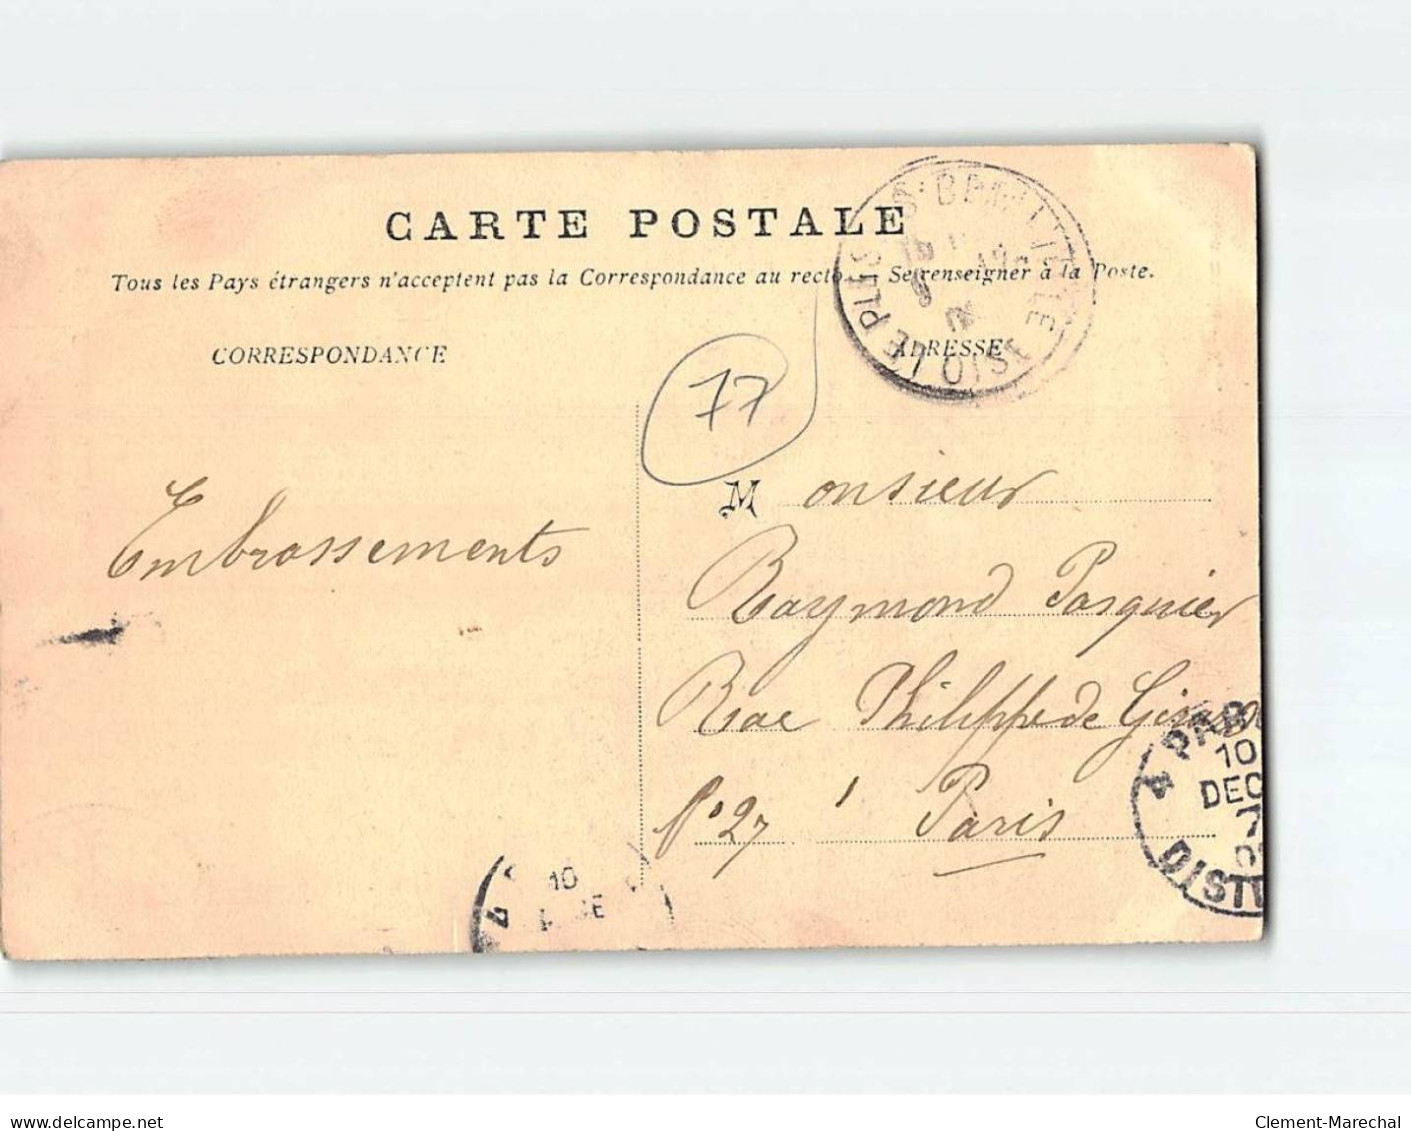 CARTE POSTALE
Tous les Pays étrangers n'acceptent pas la Correspondance au recto. Se renseigner à la Poste.
CORRESPONDANCE
ADRESSE
77
Embrassements
Monsieur
Raymond Pasquier
Rue Philippe de Girard
N° 27 Paris
LE PLESSIS BELLEVILLE
OISE
4 PAR
10
DEC
DISTR
10
4
delcampe.net
Clement-Marechal